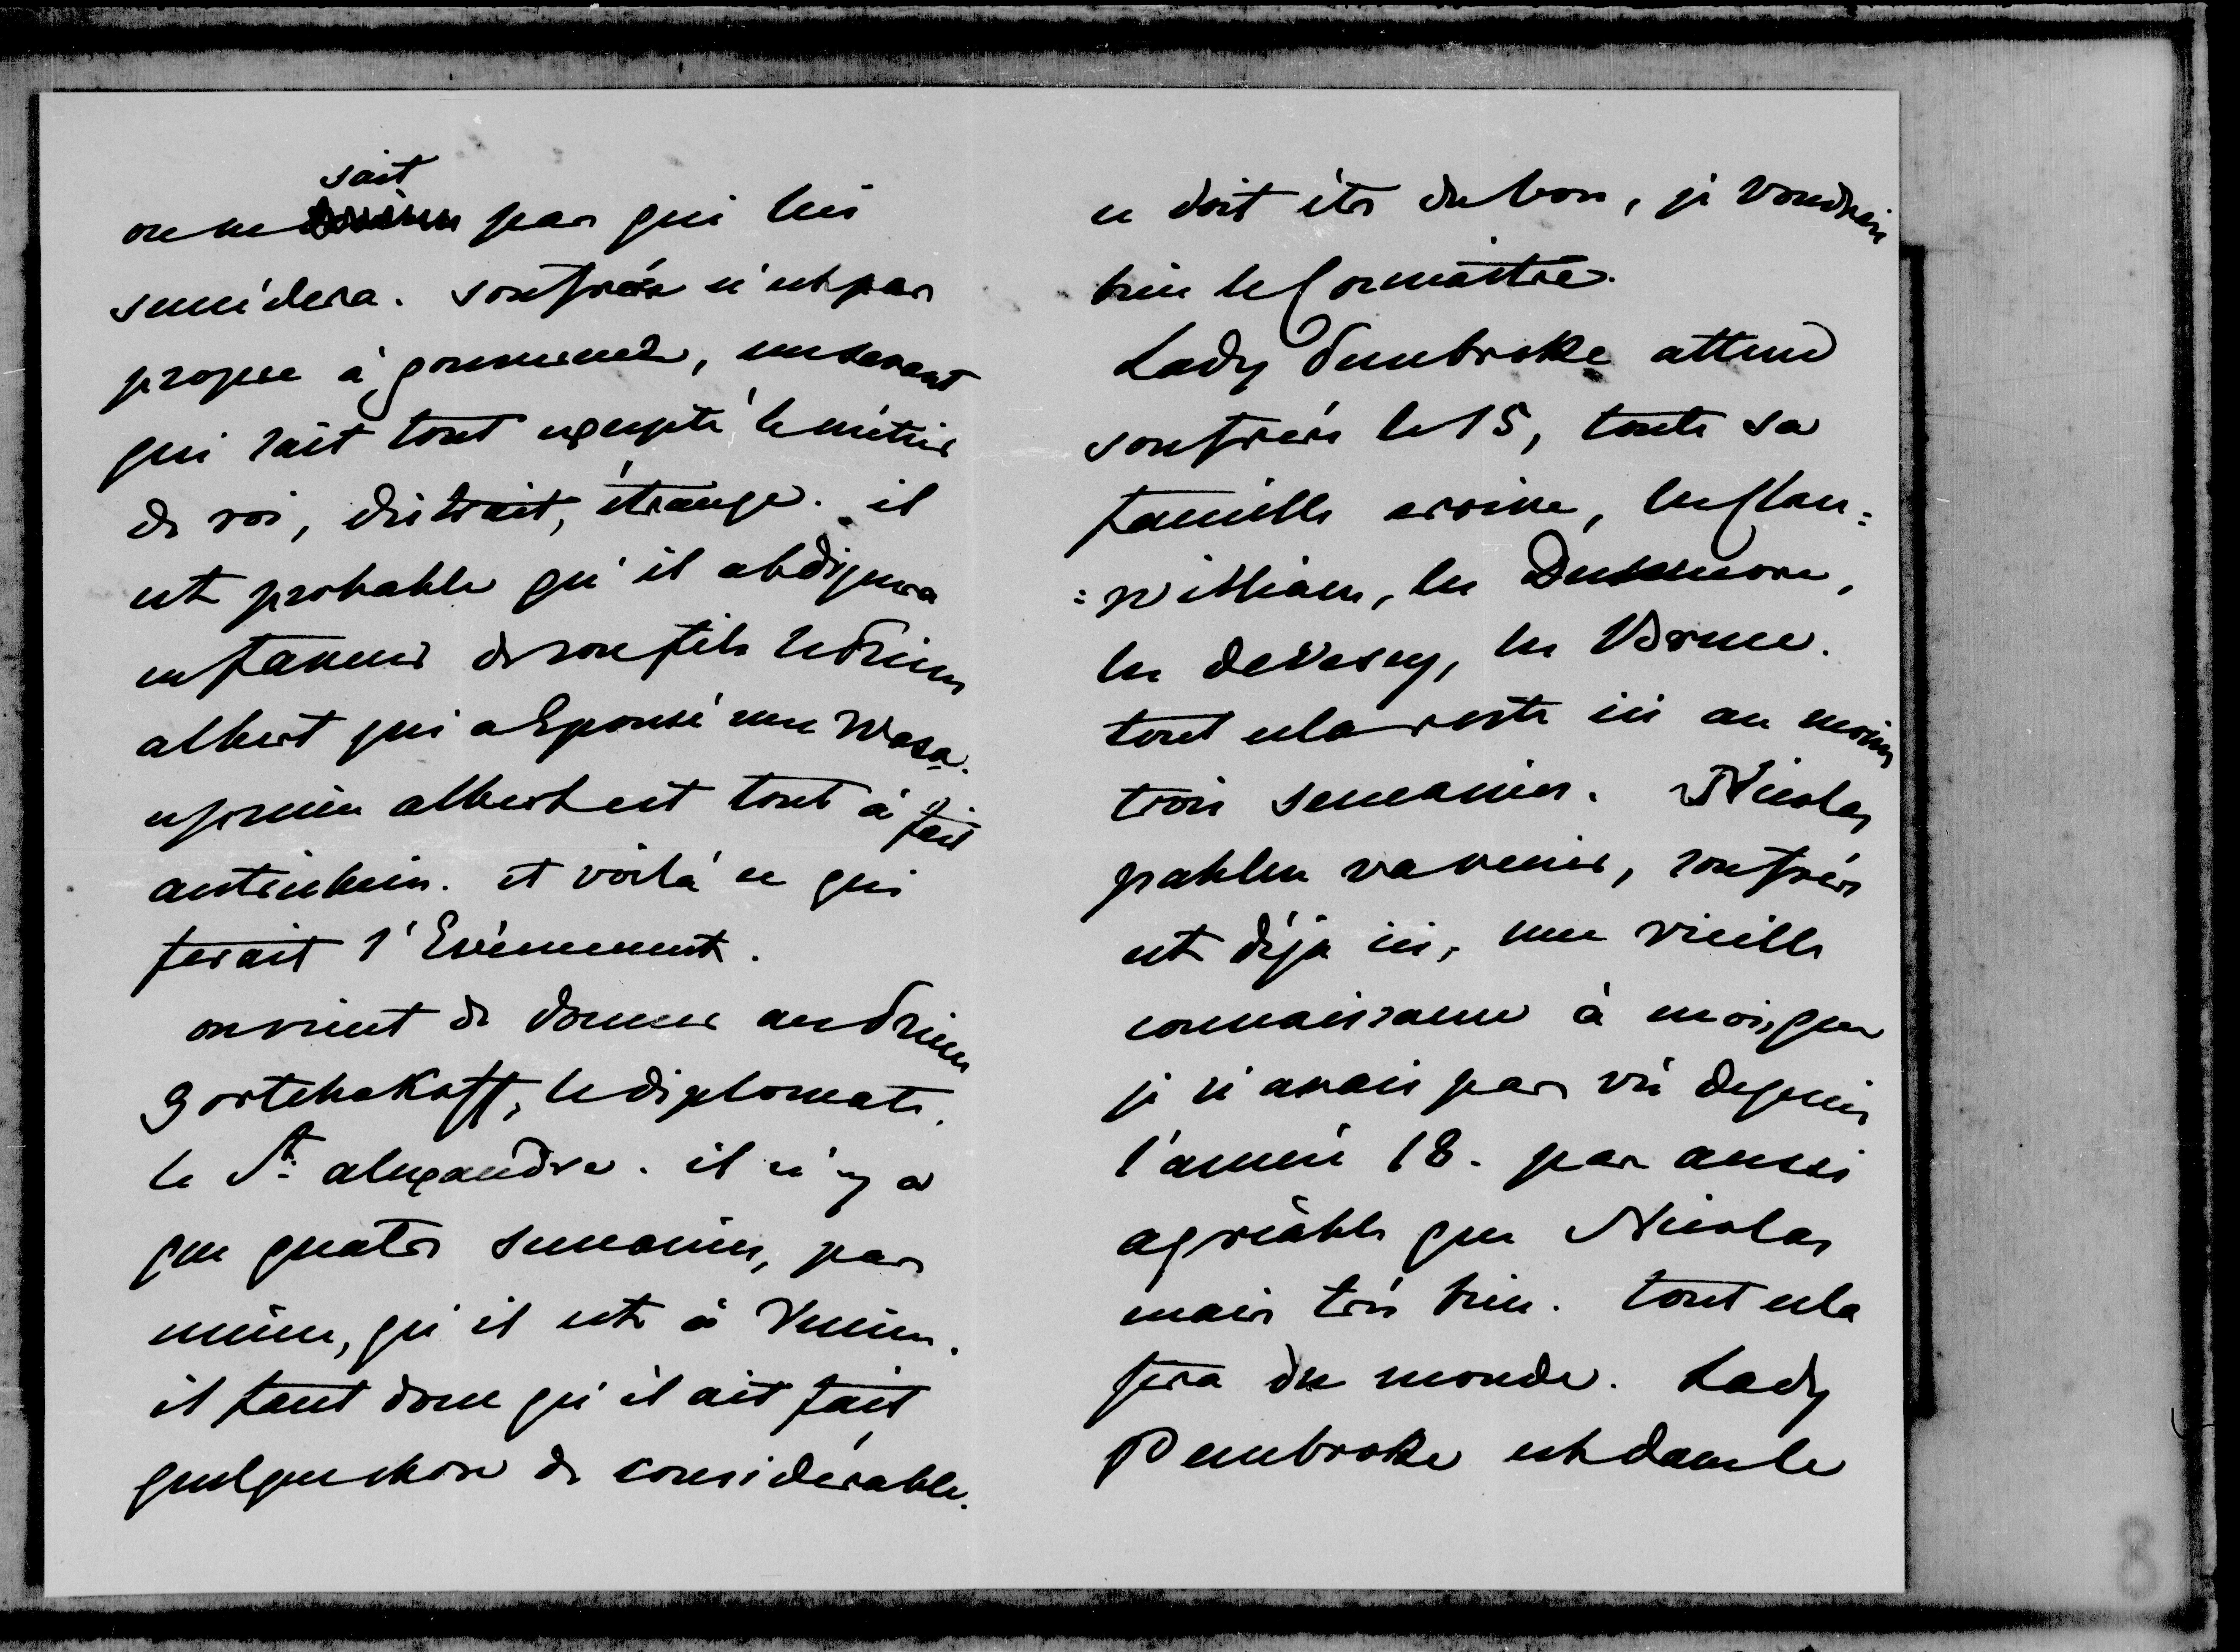 sait
on ne pas qui lui
succédera. son frère n'est pas
propre à gouverner, un savant
qui sait tout excepté le métier
de roi, distrait, étrange. il
est probable qu'il abdiquera
en faveur de son fils le Prince
albert qui a Epousé une Wasa.
ce prince albert est tout à fait
autrichien. et voilà ce qui
ferait l'Evènement.
on vient de donner au Prince
Gortchakoff, le diplomate,
le St. alexandre. il n'y a
que quatre semaines, pas
même, qu'il est à Vienne.
il faut donc qu'il ait fait
quelque chose de considérable.
ce doit être du bon, je voudrais
bien le Connaître.
Lady Pembroke attend
son frère le 15, toute sa
famille arrive, les Clan=
=william, les Dunmore,
les de Vescy, les Bruce.
tout cela reste ici au moins
trois semaines. Nicolas
pahlen va venir, son frère
est déja ici, une vieille
connaissance à moi, que
je n'avais pas vu depuis
l'année 18. pas aussi
agréable que Nicolas
mais très bien. tout cela
fera du monde. Lady
Pembroke est dans le
8